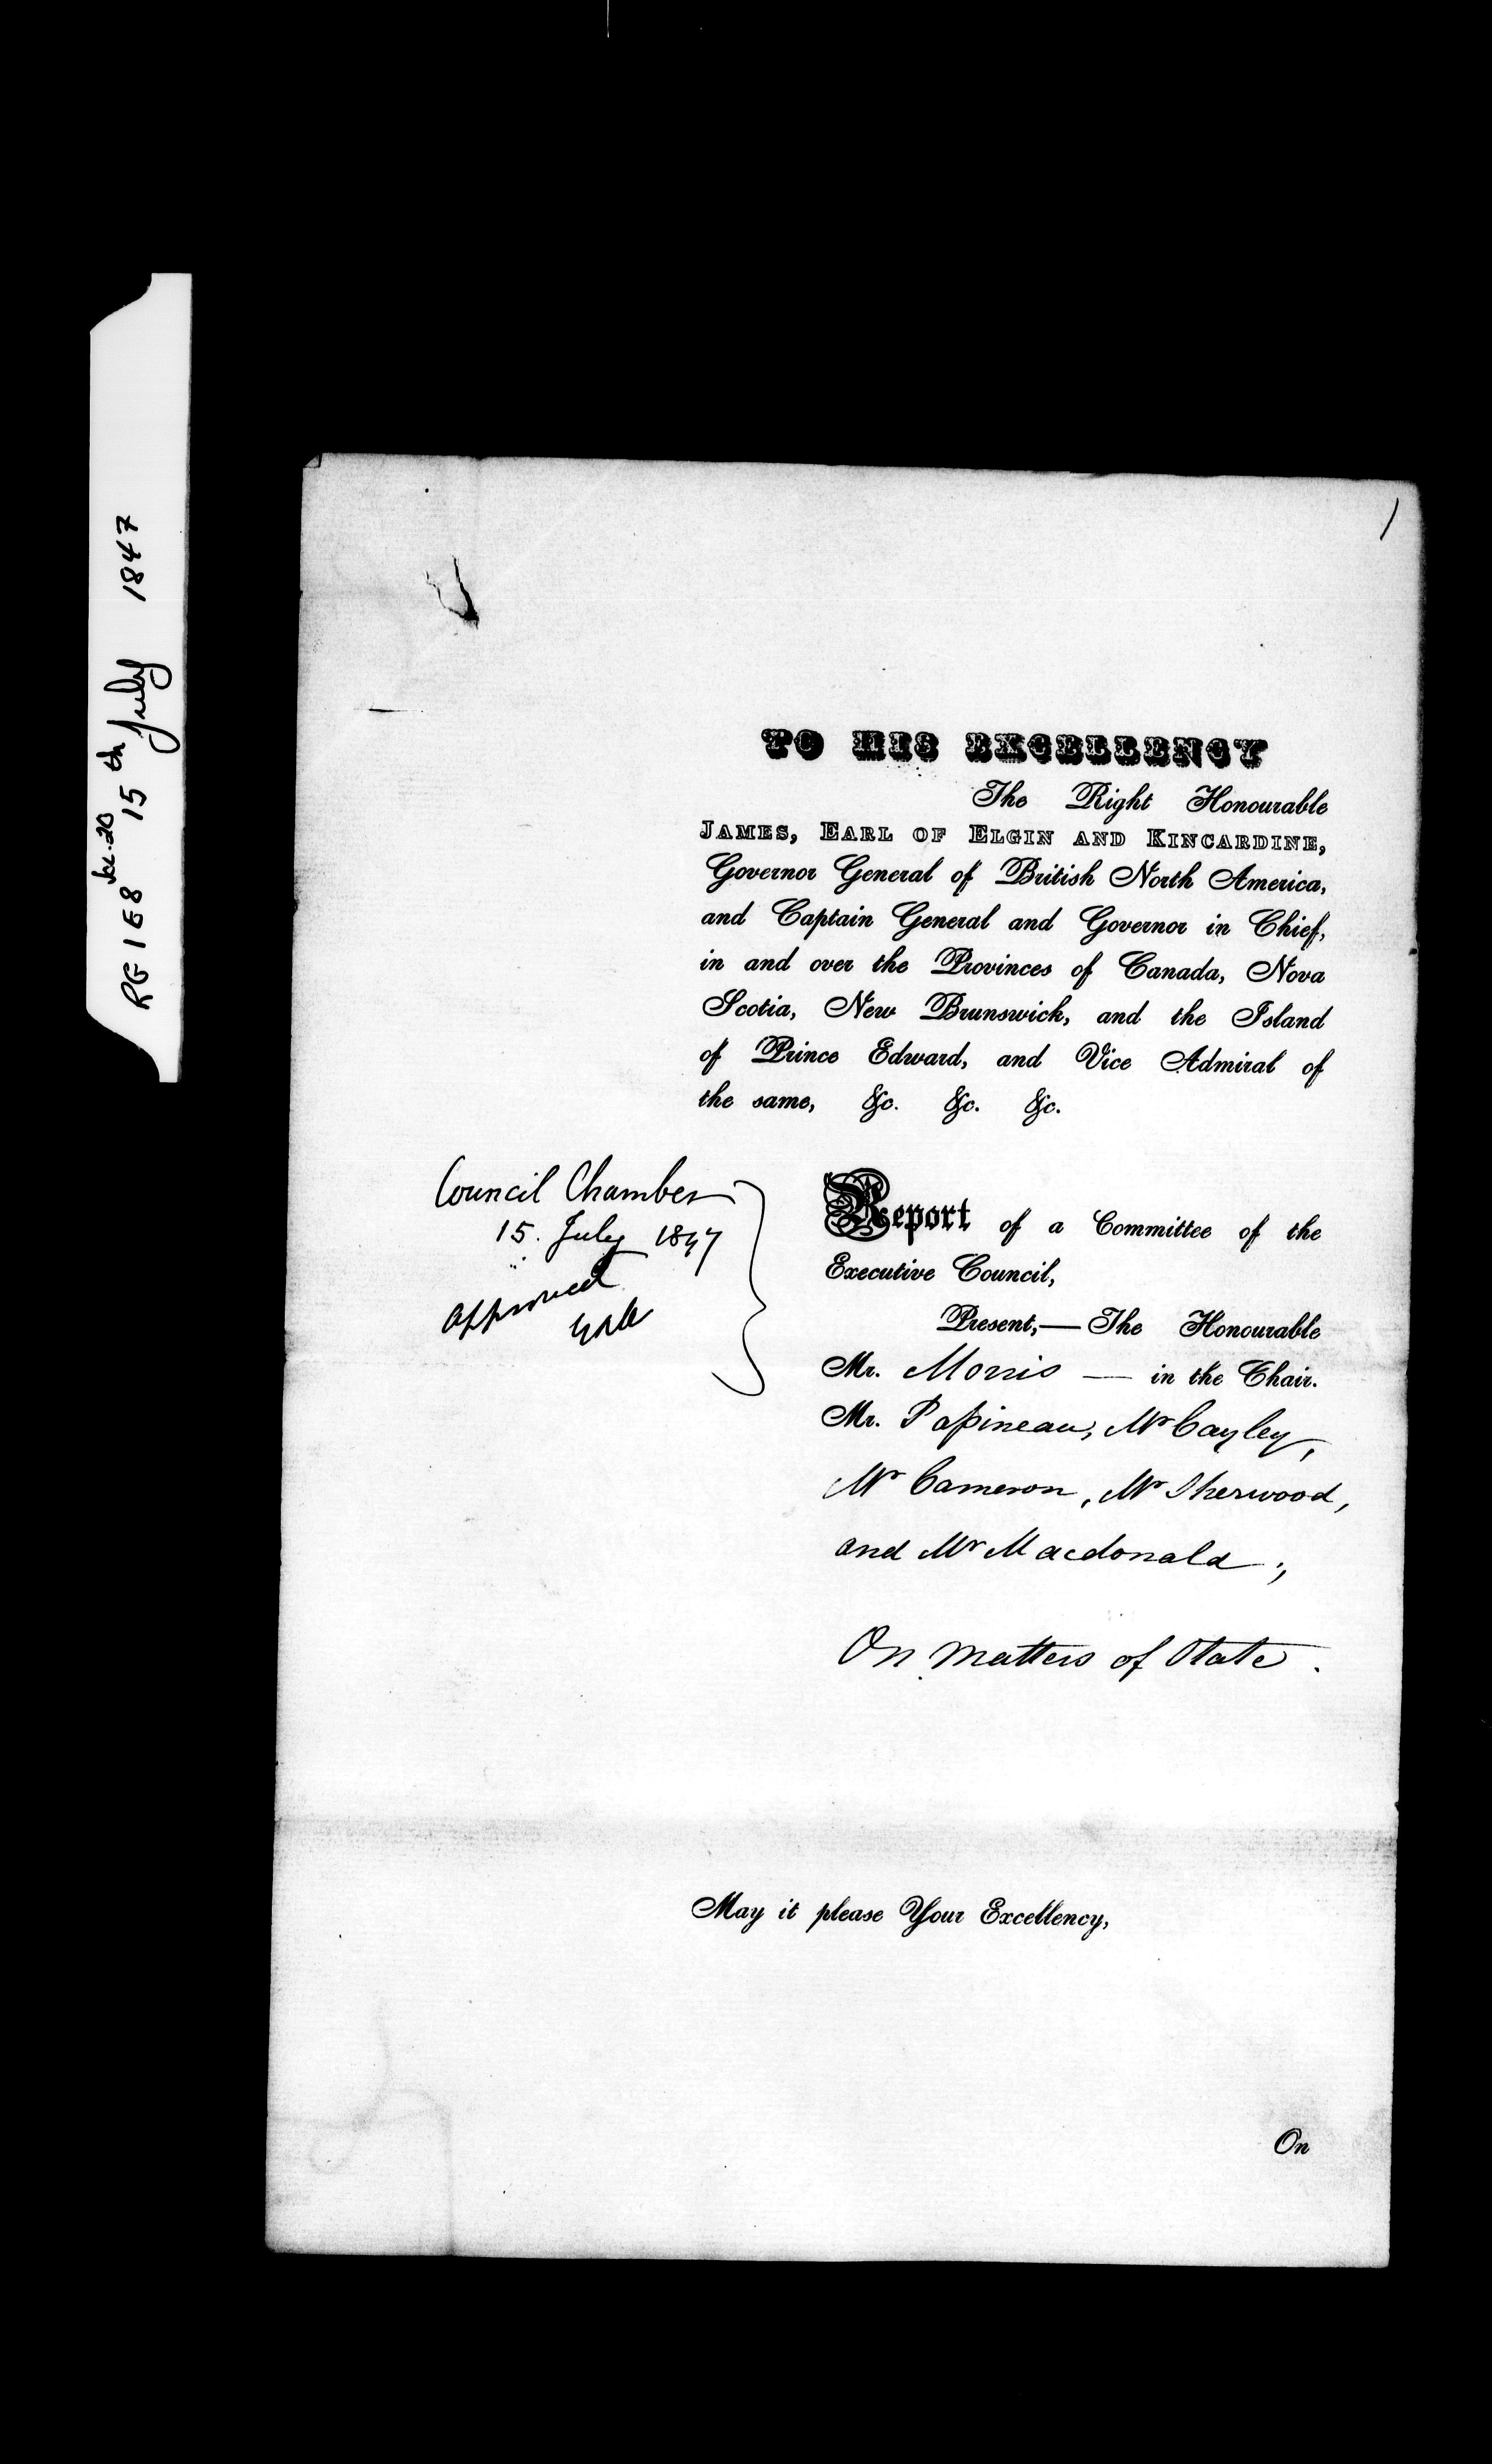 RG 1 E8 Vol. 20 15th July 1847
TO HIS EXCELLENCY
The Right Honourable
JAMES, EARL OF ELGIN AND KINCARDINE,
Governor General of British North America,
and Captain General and Governor in Chief,
in and over the Provinces of Canada, Nova
Scotia, New Brunswick, and the Island
of Prince Edward, and Vice Admiral of
the same, &c. &c. &c.
Council Chamber
15. July 1847
Approved
Report of a Committee of the
Executive Council,
Present,—The Honourable
Mr. Morris — in the Chair.
Mr. Papineau, Mr Cayley,
Mr Cameron, Mr Sherwood,
and Mr Macdonald,
On matters of State.
May it please Your Excellency,
On